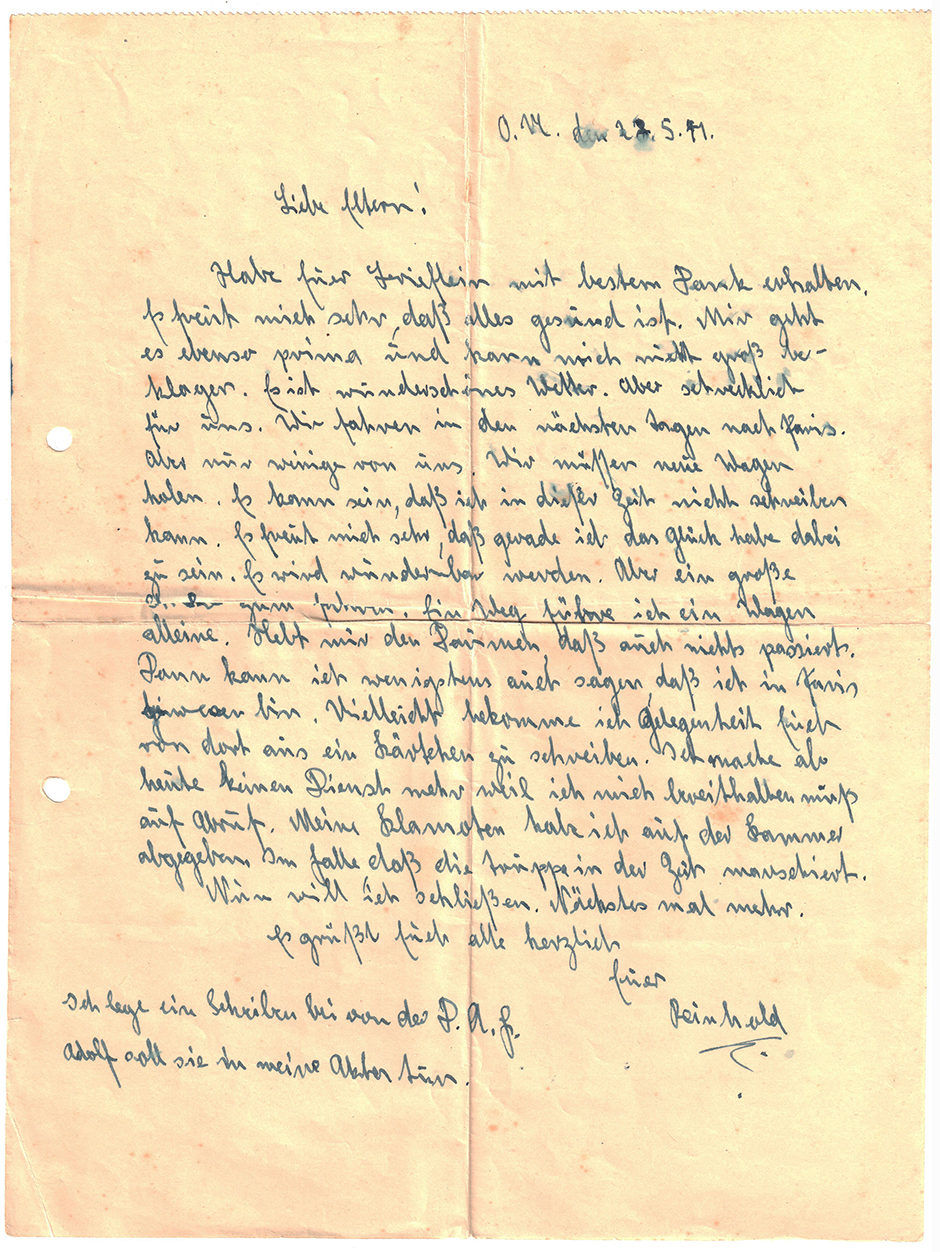 O.U. den 27.5.41.
Liebe Eltern!
Habe Euer Brieflein mit bestem Dank erhalten.
Es freut mich sehr, daß alles gesund ist. Mir geht
es ebenso prima und kann mich nicht groß be-
klagen. Es ist wunderschönes Wetter. Aber schrecklich
für uns. Wir fahren in den nächsten Tagen nach Paris.
Aber nur wenige von uns. Wir müssen neue Wagen
holen. Es kann sein, daß ich in dieser Zeit nicht schreiben
kann. Es freut mich sehr, daß gerade ich das Glück habe dabei
zu sein. Es wird wunderbar werden. Aber ein große
zum fahren. Ein Weg führe ich ein Wagen
alleine. Hebt mir den Daumen, daß auch nichts passiert.
Dann kann ich wenigstens auch sagen, daß ich in Paris
gewesen bin. Vielleicht bekomme ich Gelegenheit Euch
von dort aus ein Kärtchen zu schreiben. Ich mache ab
heute keinen Dienst mehr weil ich mich bereithalten muß
auf Abruf. Meine Klamoten habe ich auf der Kammer
abgegeben. Im falle daß die Truppe in der Zeit marschiert.
Nun will ich schließen. Nächstes mal mehr.
Es grüßt Euch alle herzlich
Euer
Reinhold
Ich lege ein Schreiben bei von der D.A.F.
Adolf soll sie in meine Akten tun.